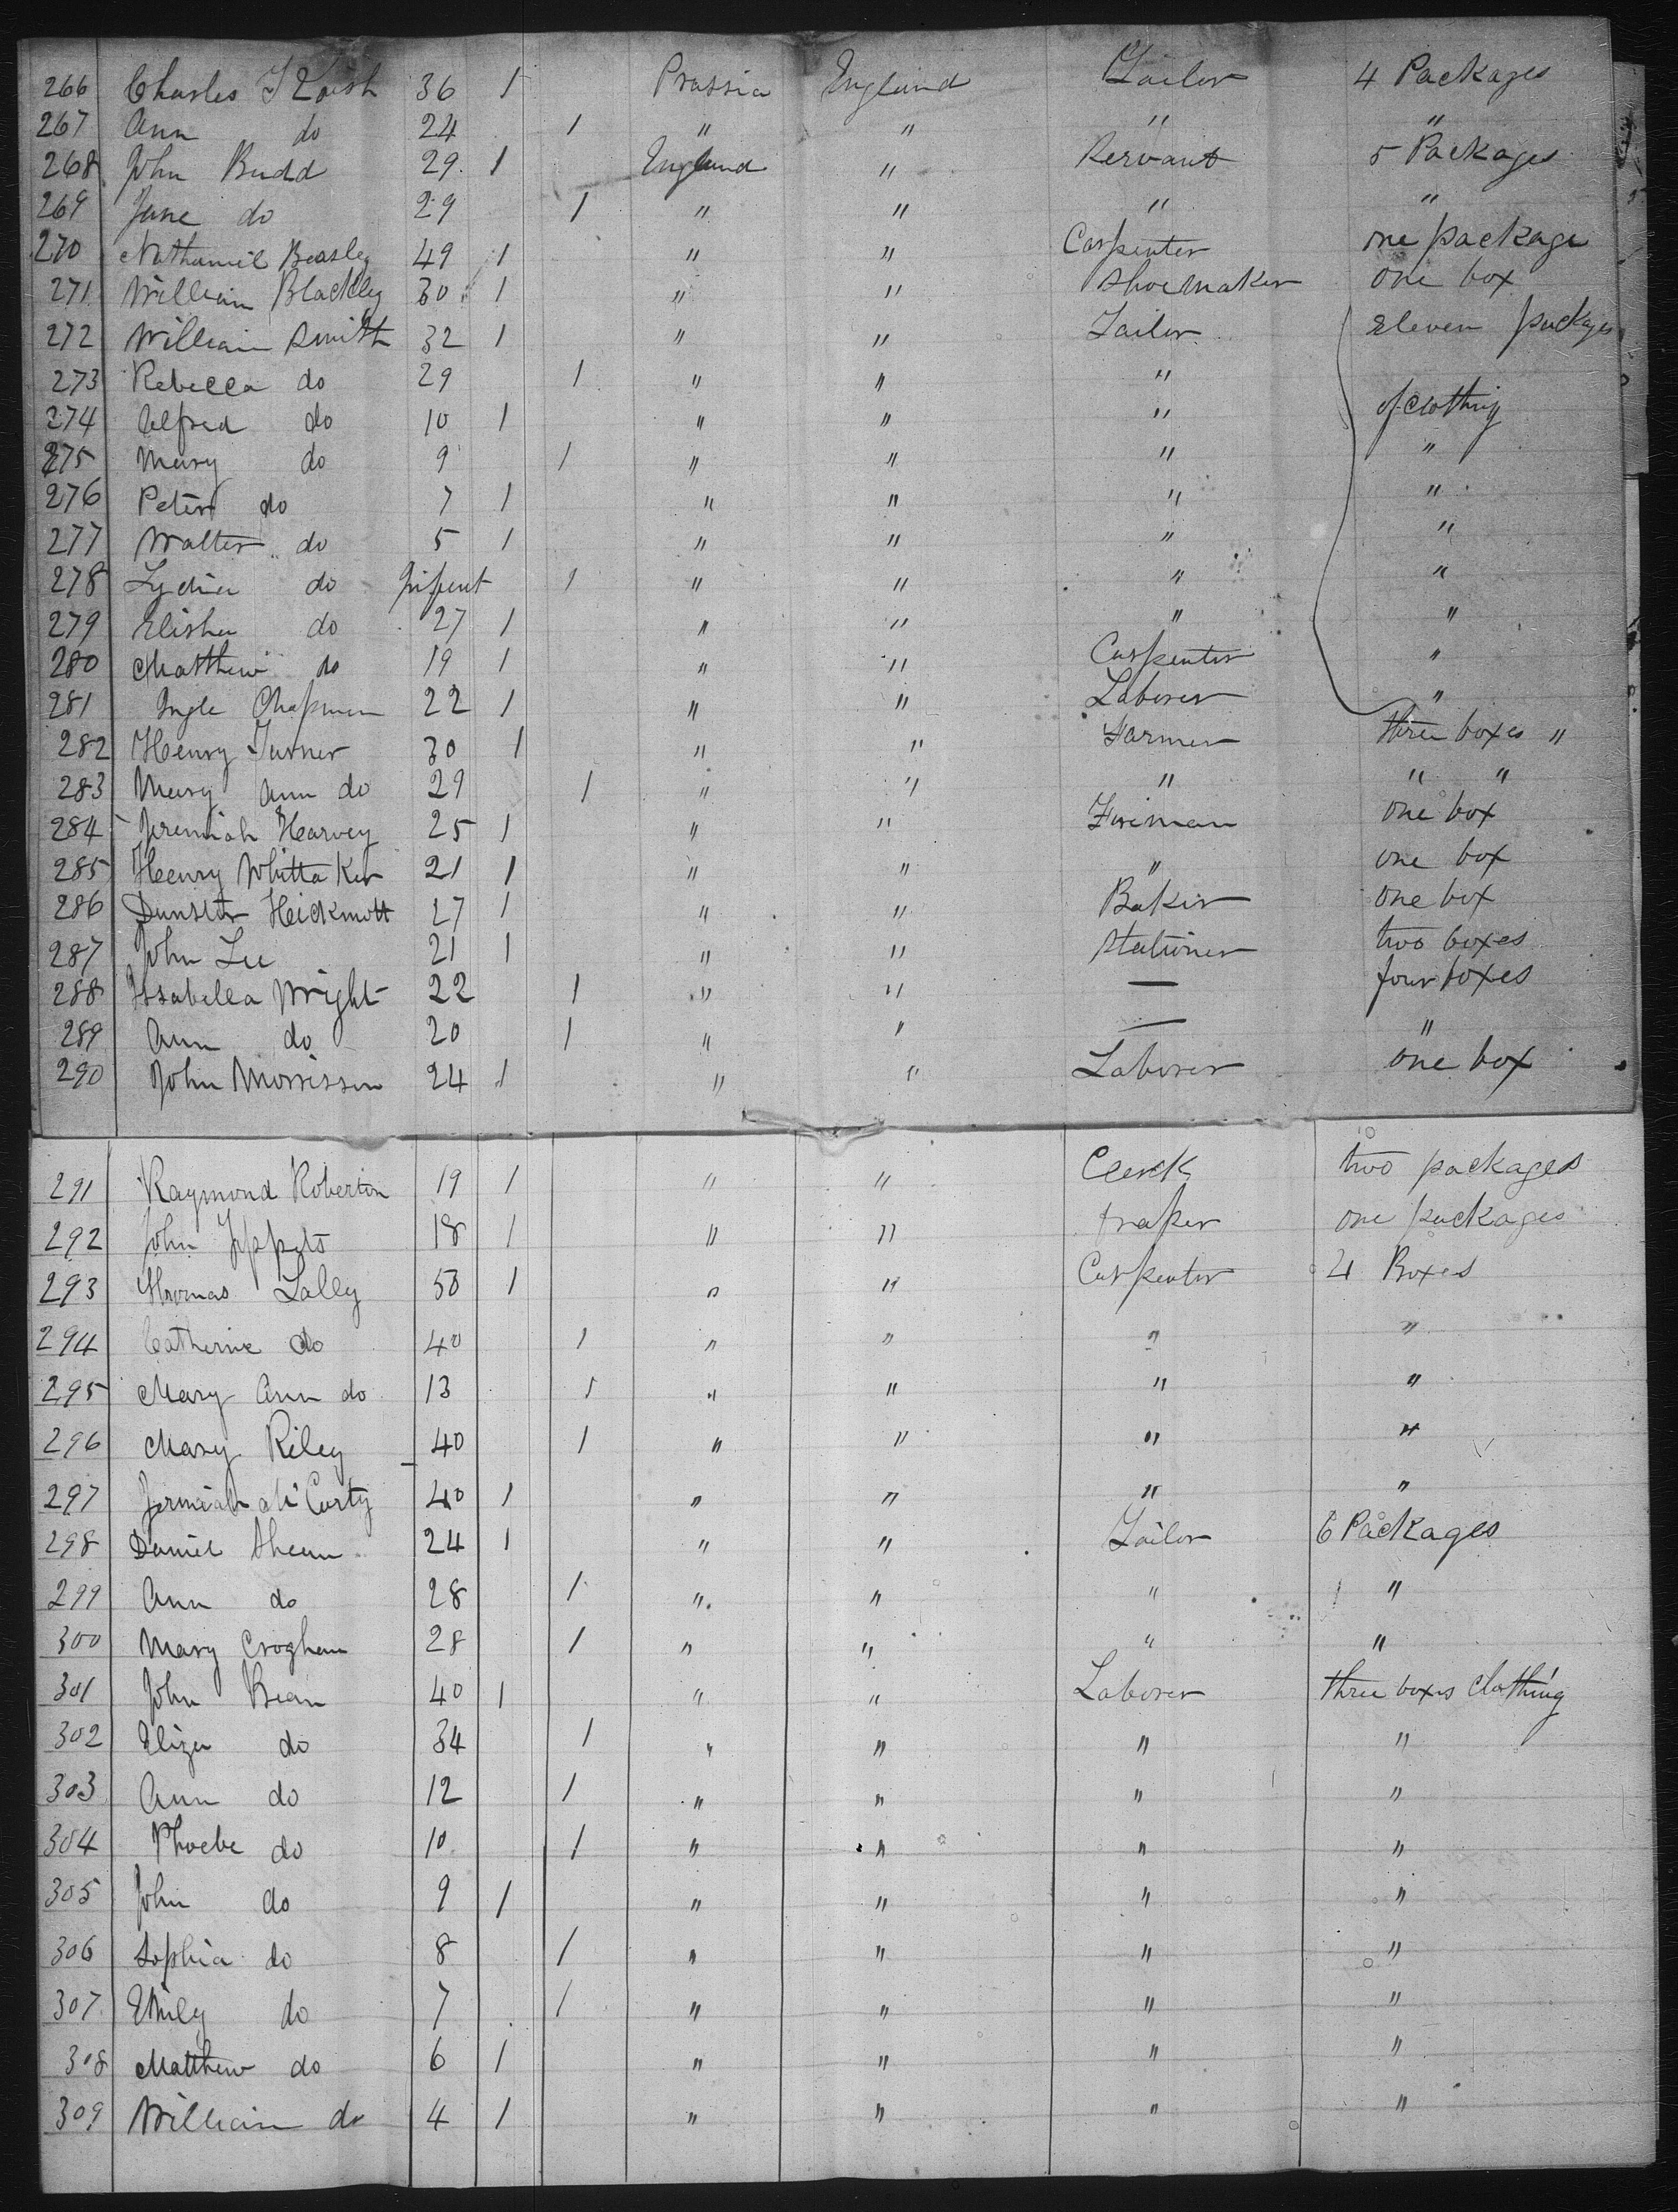 266 Charles 36 1 Prussia England Tailor 4 Packages
267 Ann do 24 1 " " " "
268 John Budd 29 1 England " Servant 5 Packages
269 Jane do 29 1 " " " "
270 Nathaniel Beasley 49 1 " " Carpenter one package
271 William Blackley 30 1 " " Shoemaker one box
272 William Smith 32 1 " " Tailor Eleven packages
273 Rebecca do 29 1 " " " of clothing
274 Alfred do 10 1 " " "
275 Mary do 9 1 " " " "
276 Peter do 7 1 " " " "
277 Walter do 5 1 " " " "
278 Lydia do Infant 1 " " " "
279 Elisha do 27 1 " " " "
280 Matthew do 19 1 " " Carpenter "
281 Ingle Chapman 22 1 " " Laborer "
282 Henry Turner 30 1 " " Farmer three boxes "
283 Mary Ann do 29 1 " " " " "
284 Jeremiah Harvey 25 1 " " Fireman one box
285 Henry Whittaker 21 1 " " " one box
286 Dunster Heickmott 27 1 " " Baker one box
287 John Lee 21 1 " " Stationer two boxes
288 Issabella Wright 22 1 " " — four boxes
289 Ann do 20 1 " " — "
290 John Morrison 24 1 " " Laborer one box
291 Raymond Roberton 19 1 " " Clerk two packages
292 John 18 1 " " draper one packages
293 Thomas Lally 50 1 " " Carpenter 4 Boxes
294 Catherine do 40 1 " " " "
295 Mary Ann do 13 1 " " " "
296 Mary Riley 40 1 " " " "
297 Jermiah McCarty 40 1 " " " "
298 Daniel Shean 24 1 " " Tailor 6 Packages
299 Ann do 28 1 " " " "
300 Mary Croghan 28 1 " " " "
301 John Bean 40 1 " " Laborer three boxes clothing
302 Eliza do 34 1 " " " "
303 Ann do 12 1 " " " "
304 Phoebe do 10 1 " " " "
305 John do 9 1 " " " "
306 Sophia do 8 1 " " " "
307 Emily do 7 1 " " " "
308 Matthew do 6 1 " " " "
309 William do 4 1 " " " "